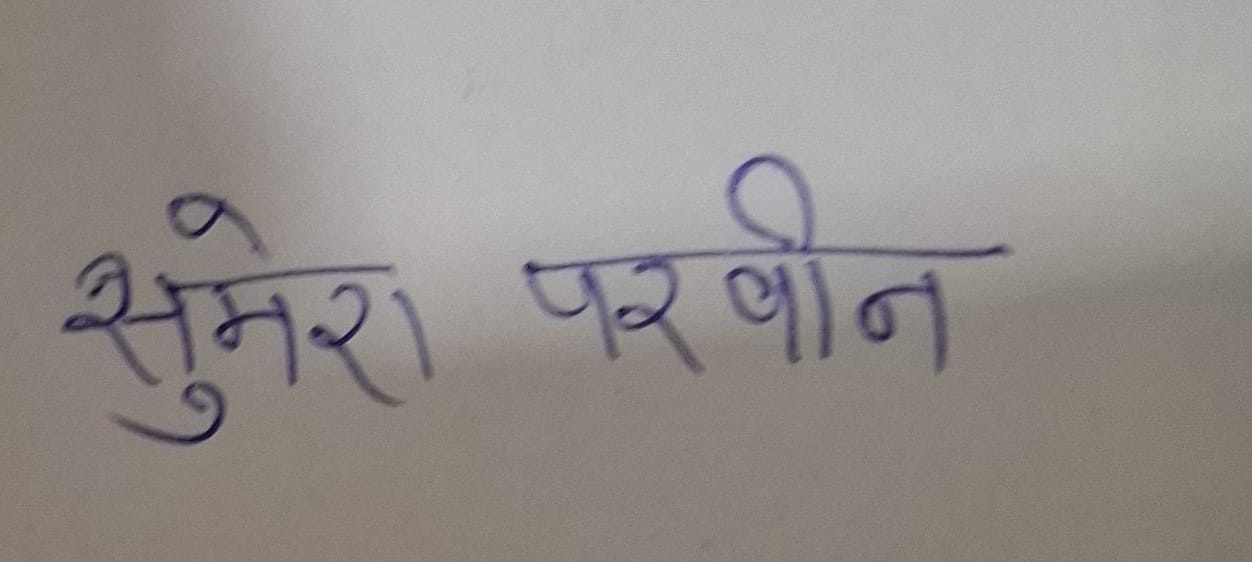 सुमेरा परवीन